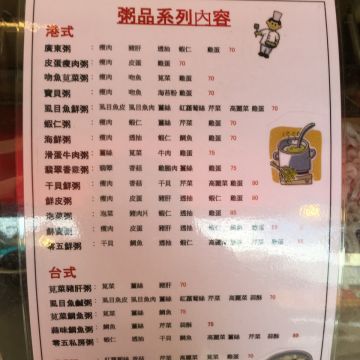 粥品系列內容
港式
廣東粥：瘦肉 豬肝 透抽 蝦仁 雞蛋 70
皮蛋瘦肉粥：瘦肉 皮蛋 雞蛋 70
吻魚莧菜粥：瘦肉 吻魚 莧菜 雞蛋 70
寶貝粥：瘦肉 吻魚 海苔粉 雞蛋 70
虱目魚鮮粥：虱目魚皮 虱目魚肉 薑絲 紅蘿蔔絲 芹菜 高麗菜 雞蛋
蝦仁粥：瘦肉 蝦仁 薑絲 芹菜 雞蛋 70
海鮮粥：瘦肉 透抽 蝦仁 鯛魚 雞蛋 70
滑蛋牛肉粥：薑絲 莧菜 牛肉 雞蛋 75
翡翠香菇雞粥：翡翠 香菇 雞腿肉 薑絲 雞蛋
干貝鮮粥：瘦肉 香菇 干貝 芹菜 高麗菜 雞蛋 80
鮮皮粥：瘦肉 皮蛋 透抽 蝦仁 高麗菜 雞蛋 80
泡菜粥：泡菜 豬肉片 蝦仁 雞蛋
鮮寶粥：瘦肉 干貝 透抽 蝦仁 高麗菜 雞蛋
零五鮮粥：干貝 鯛魚 透抽 蝦仁 高麗菜 薑絲 芹菜 雞蛋
台式
莧菜豬肝粥：莧菜 薑絲 豬肝 70
虱目魚鹹粥：虱目魚皮 虱目魚肉 薑絲 紅蘿蔔絲 芹菜 高麗菜 蒜酥
莧菜鯛魚粥：莧菜 薑絲 鯛魚 70
蒜味鯛魚粥：鯛魚 薑絲 芹菜 蒜酥 70
零五私房粥：干貝 鯛魚 透抽 蝦仁 高麗菜 薑絲 芹菜 蒜酥
紅蘿蔔絲 芹菜 高麗菜 蒜酥